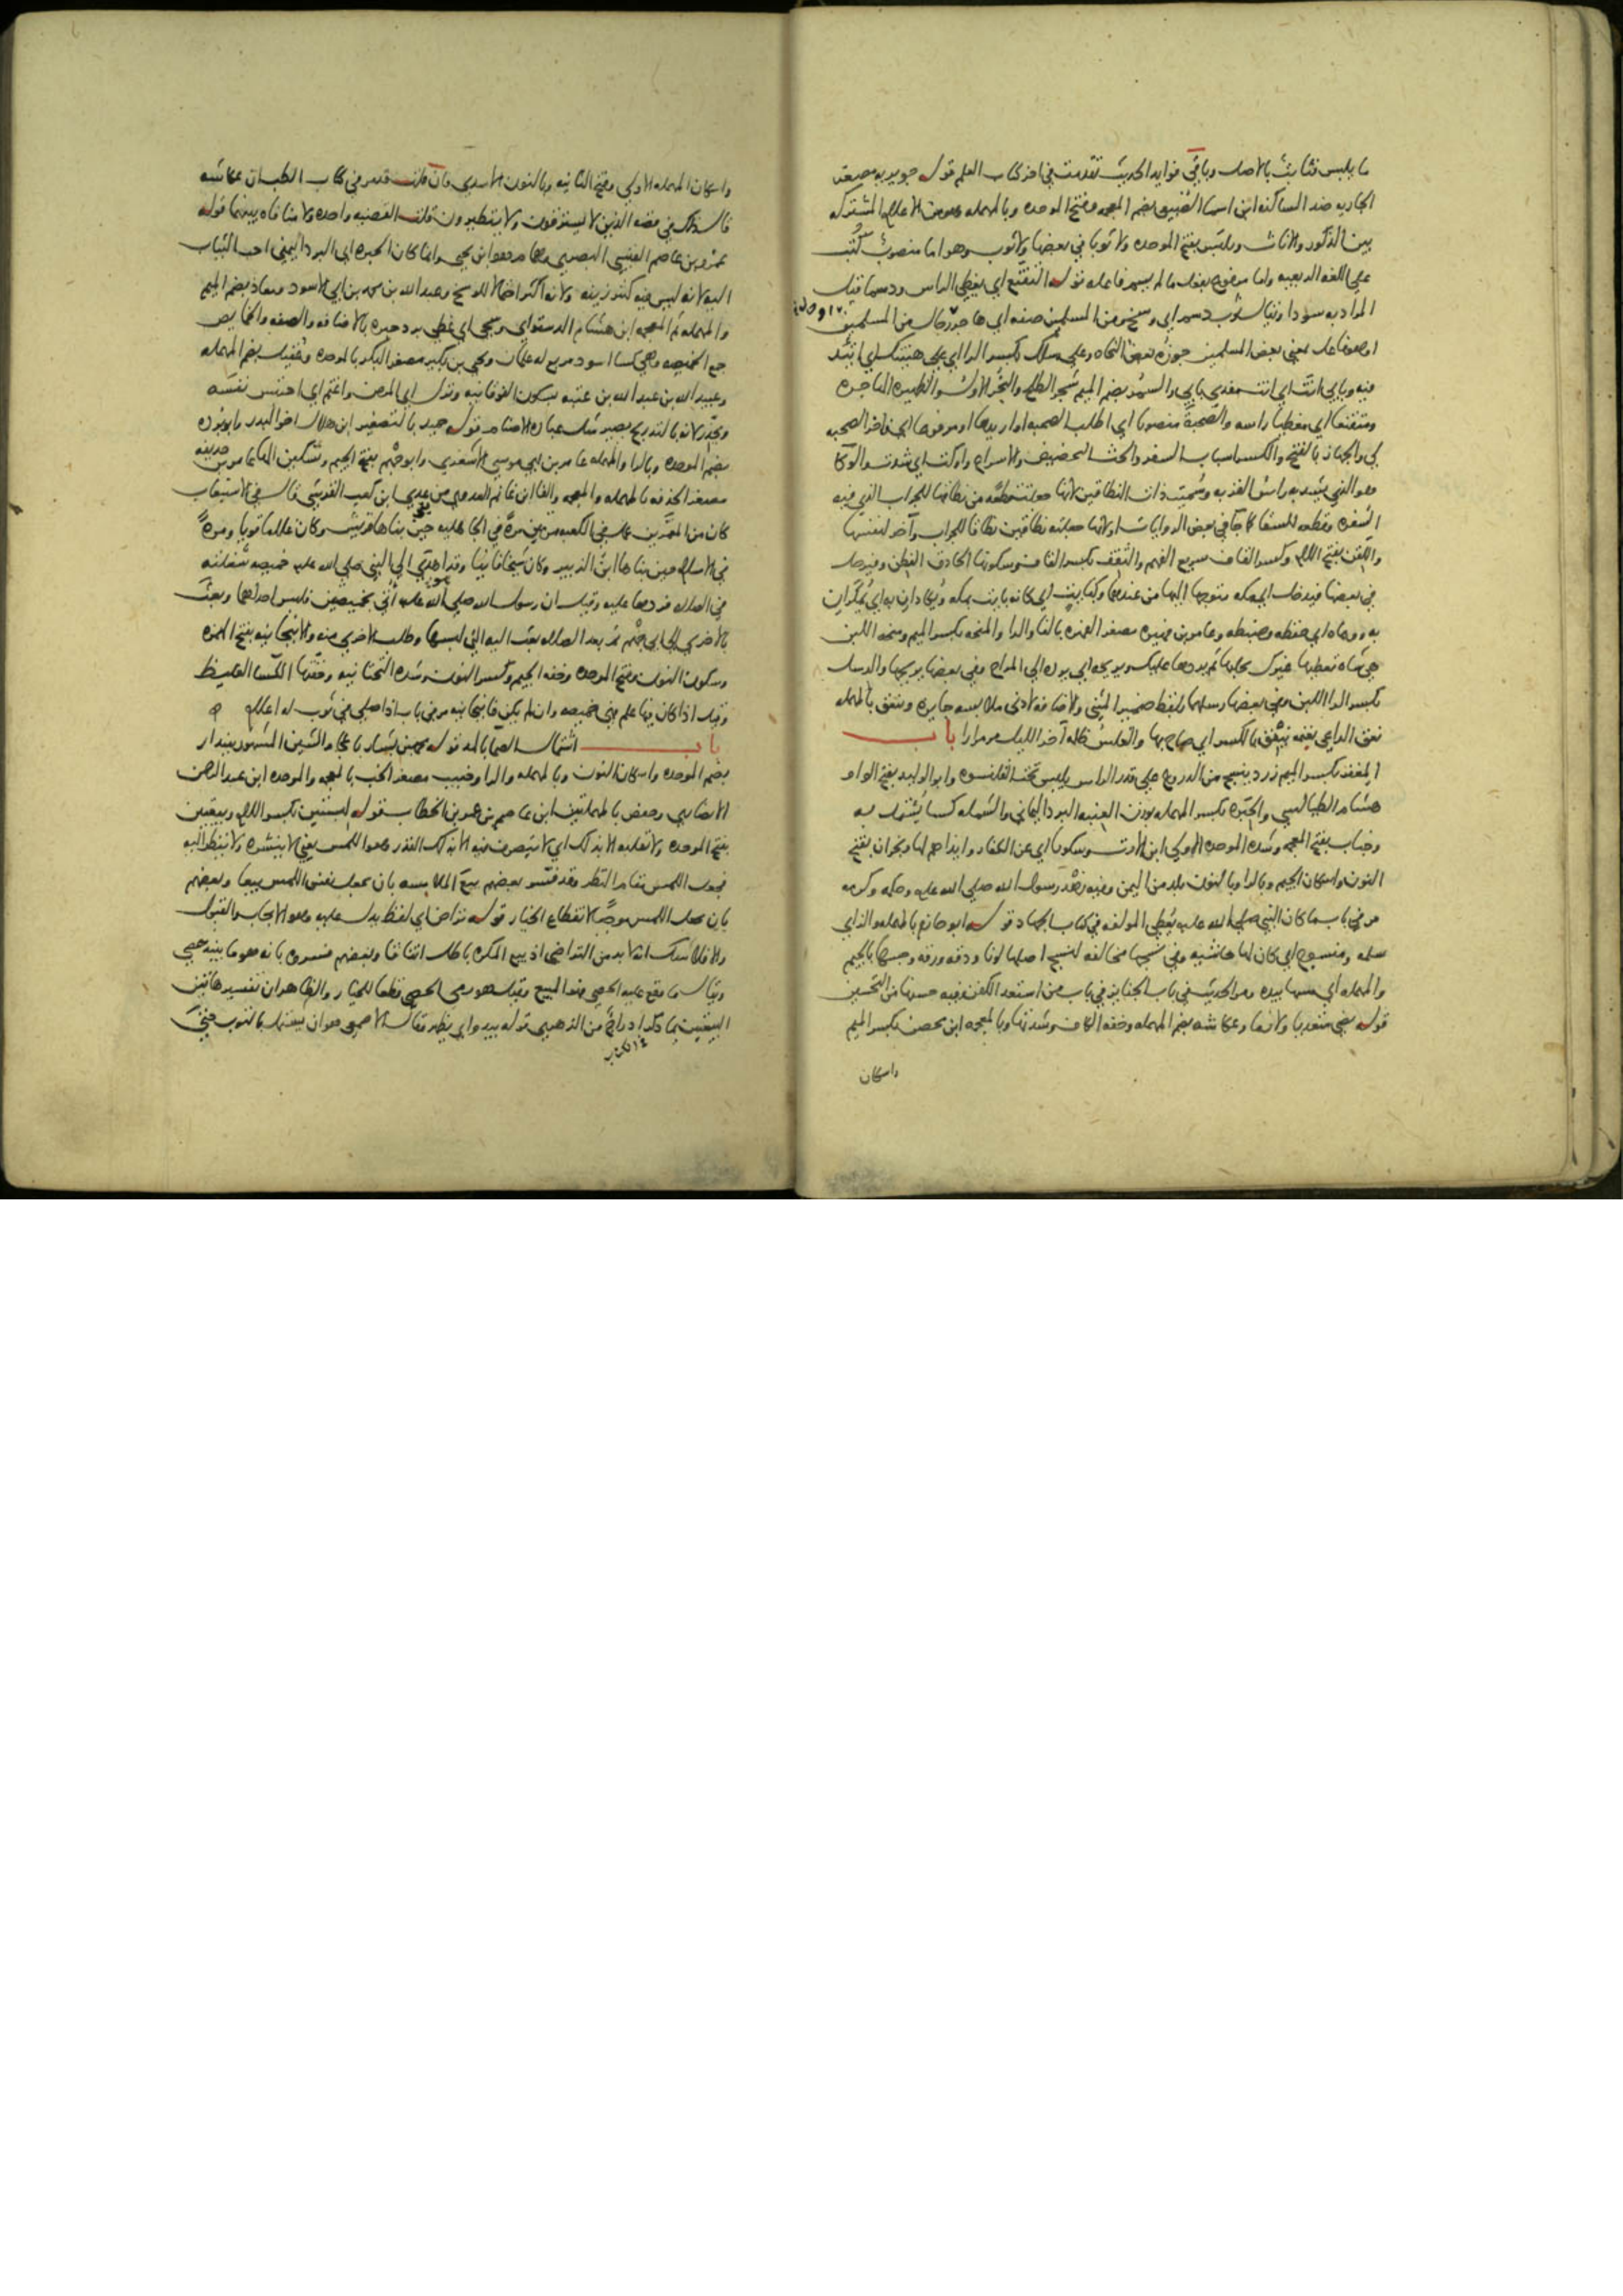 ما يلبس فثابت بالاصل وباقي فوايد الحديث تقدمت في اخر كتاب العلم قوله جويريه مصغر
الجاريه ضد الساكنه ابن اسما الضبيعي بضم المعجمه وفتح الموحده وبالمهمله وهو من الاعلام المشتركه
بين الذكور والاناث ويلبس بفتح الموحده ولا ثوبا في بعضها ولا ثوب وهو اما منصوب كتب
علي اللغه الربعيه واما مرفوع بفعل ما لم يسم فاعله قوله التقنع اي يغطي الراس ودسما قيل
المراد به سودا ويقال ثوب دسم اي وسخ ومن المسلمين صفه اي هاجر رجال من المسلمين
او هو فاعل بمعني بعض المسلمين جوزه بعض النحاه وعلي رسلك بكسر الرا اي علي هينتك اي اتئد
فيه وبابي انت اي انت مفدي بابي والسمر بضم الميم شجر الطلح والنحر الاول والظهيره الهاجره
ومتقنعا اي مغطيا راسه والصحبه منصوبا اي اطلب الصحبه او اريدها او مرفوعا اي فاخر الصحبه
لي والجهاز بالفتح والكسر اسباب السفر والحث التحضيض والاسراع واوكت اي شدت والوكا
هو الذي يشد به راس القربه وسميت ذات النطاقين لانها جعلت قطعه من نطاقها للجراب الذي فيه
السفره وقطعه للسقا كما جا في بعض الروايات او لانها جعلته نطاقين نطاقا للجراب وآخر لنفسها
واللقن بفتح اللام وكسر القاف سريع الفهم والثقف بكسر القاف وسكونها الحاذق الفطن وفيرحل
في بعضها فيدخل اي مكه متوجها اليها من عندهما وكبايت اي كانه بايت بمكه ويكادان به اي يمكران
به ووعاه اي حفظه وضبطه وعامر بن فهيره مصغر الفهره بالفا والرا والمنحه بكسر الميم ومنحه اللبن
هي شاه تعطيها غيرك يحلبها ثم يردها عليك ويريحه اي يرده الي المراح وفي بعضها يريحها والرسل
بكسر الرا اللبن وفي بعضها رسلها بلفظ ضمير المثني والاضافه لادني ملابسه جايزه وينعق بالمهمله
نعق الراعي بغنمه ينعق بالكسر اي صاح بها والغلس ظلمه آخر الليل مر مرارا باب
المغفر بكسر الميم زرد ينسج من الدروع علي قدر الراس يلبس تحت القلنسوه وابو الوليد بفتح الواو
هشام الطيالسي والحبره بكسر المهمله بوزن العنبه البرد اليماني والشمله كسا يشتمل به
وخباب بفتح المعجمه وشده الموحده الاولي ابن الارت وشكونا اي عن الكفار وايذاهم لها ونجران بفتح
النون واسكان الجيم وبالرا وبالنون بلد من اليمن وفيه زهد رسول الله صلي الله عليه وحلمه وكرمه
مر في باب ما كان النبي صلي الله عليه يعطي المولفه في كتاب الجهاد قوله ابو حازم بالمهمله والزاي
سلمه ومنسوج اي كان لها حاشيه وفي نسجها مخالفه لنسج اصلها لونا ودقه ورقه وجسها بالجيم
والمهمله اي مسها بيده ومر الحديث في باب الجنايز في باب من استعد الكفن وفيه حسنها من التحسين
قوله يجي متعديا ولازما وعكاشه بضم المهمله وخفه الكاف وشدتها وبالمعجمه ابن محصن بكسر الميم
واسكان
واسكان المهمله الاولي وفتح الثانيه وبالنون الاسدي فان قلت قد مر في كتاب الطب ان عكاشه
قال ذلك في قصه الذين لا يسترقون ولا يتطيرون قلت القصه واحده ولا منافاه بينهما قوله
عمرو بن عاصم القيسي البصري وهما مرفوعا وانما كان الحبره اي البرد اليمني احب الثياب
اليه لانه ليس فيه كثير زينه ولانه اكثر احتمالا للوسخ وعبد الله بن محمد بن ابي الاسود ومعاذ بضم الميم
والمهمله ثم المعجمه ابن هشام الدستواي وسجي اي غطي ببرد حبره بالاضافه والصفه والخمايص
جمع الخميصه وهي كسا اسود مربع له علمان ويحيي بن بكير مصغر البكر بالموحده وعقيل بضم المهمله
وعبيد الله بن عبد الله بن عتبه بسكون الفوقانيه ونزل اي المرض واغتم اي احتبس نفسه
ويحذر لانه بالتدريج يصير مثل عباده الاصنام قوله حميد بالتصغير ابن هلال اخو البدر وابو برده
بضم الموحده وبالرا والمهمله عامر بن ابي موسي الاشعري وابو جهم بفتح الجيم وتسكين الها عامر بن حذيفه
مصغر الحذفه بالمهمله والمعجمه والفا ابن غانم العدوي من عدي ابن كعب القرشي قال في الاستيعاب
كان من المعمرين عمل في الكعبه مرتين مره في الجاهليه حين بناها قريش وكان غلاما قويا ومره
في الاسلام حين بناها ابن الزبير وكان شيخا فانيا وقد اهدي الي النبي صلي الله عليه خميصه شغلته
في الصلاه فردها عليه وقيل ان رسول الله صلي الله عليه اتي بخميصتين فلبس احداهما وبعث
بالاخري الي ابي جهم ثم بعد الصلاه بعث اليه التي لبسها وطلب الاخري منه والانبجانيه بفتح الهمزه
وسكون النون وفتح الموحده وخفه الجيم وكسر النون وشده التحتانيه وخفتها الكسا الغليظ
وقيل اذا كان فيها علم فهي خميصه وان لم يكن فانبجانيه مر في باب اذا صلي في ثوب له اعلام
باب اشتمال الصما بالمد قوله محمد بن بشار باعجام الشين المشهور ببندار
بضم الموحده واسكان النون وبالمهمله والرا وخبيب مصغر الخب بالمعجمه والموحده ابن عبد الرحمن
الانصاري وحفص بالمهملتين ابن عاصم بن عمر بن الخطاب قوله لبستين بكسر اللام وبيعتين
بفتح الموحده ولا تقلبه الا بذلك اي لا يتصرف فيه الا بذلك القدر وهو اللمس يعني لا ينشره ولا ينظر اليه
فجعل اللمس مقام النظر وقد فسر بعضهم بيع الملامسه بان يجعل نفس اللمس بيعا وبعضهم
بان يجعل اللمس موجبا لانقطاع الخيار قوله تراض اي لفظ يدل عليه وهو الايجاب والقبول
والا فلا شك انه لا بد من التراضي اذ بيع المكره باطل اتفاقا وبعضهم فسروه بانه هو ما ينبذ حصي
ويقال ما وقع عليه الحصي فهو المبيع وقيل هو رمي الحصي قطعا للخيار والظاهر ان تفسير هاتين
البيعتين بما ذكر ادراج من الزهري قوله يبدو اي يظهر وقال الاصمعي هو ان يشتمل بالثوب حتي